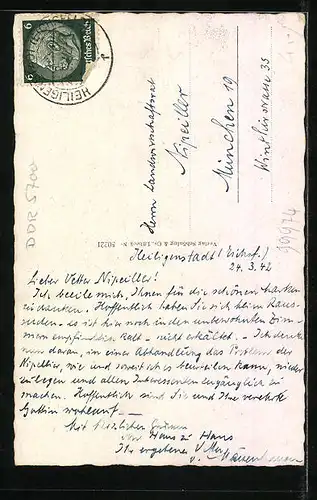 6 6
Deutsches Reich
HEILIGEN
Herrn Landwirtschaftsrat
Nipeiller
München 19
Winthirstrasse 35
DDR 5700
99974
Verlag Schöning & Co., Lübeck 80221
Heiligenstadt (Eichsf.)
24. 3. 42
Lieber Vetter Nipeiller!
Ich beeile mich, Ihnen für die schönen Karten
zu danken. Hoffentlich haben Sie sich beim Haus-
suchen - es ist hier noch in den unbewohnten Zim-
mern empfindlich kalt - nicht erkältet. - Ich denke
nun daran, in eine Abhandlung das Problem der
Nipeiller, wie und soweit ich es beurteilen kann, nieder
zulegen und allen Interessenten zugänglich zu
machen. Hoffentlich sind Sie und Ihre verehrte
Gattin wohlauf. -
Mit herzlichen Grüssen
von Haus zu Haus
Ihr ergebener